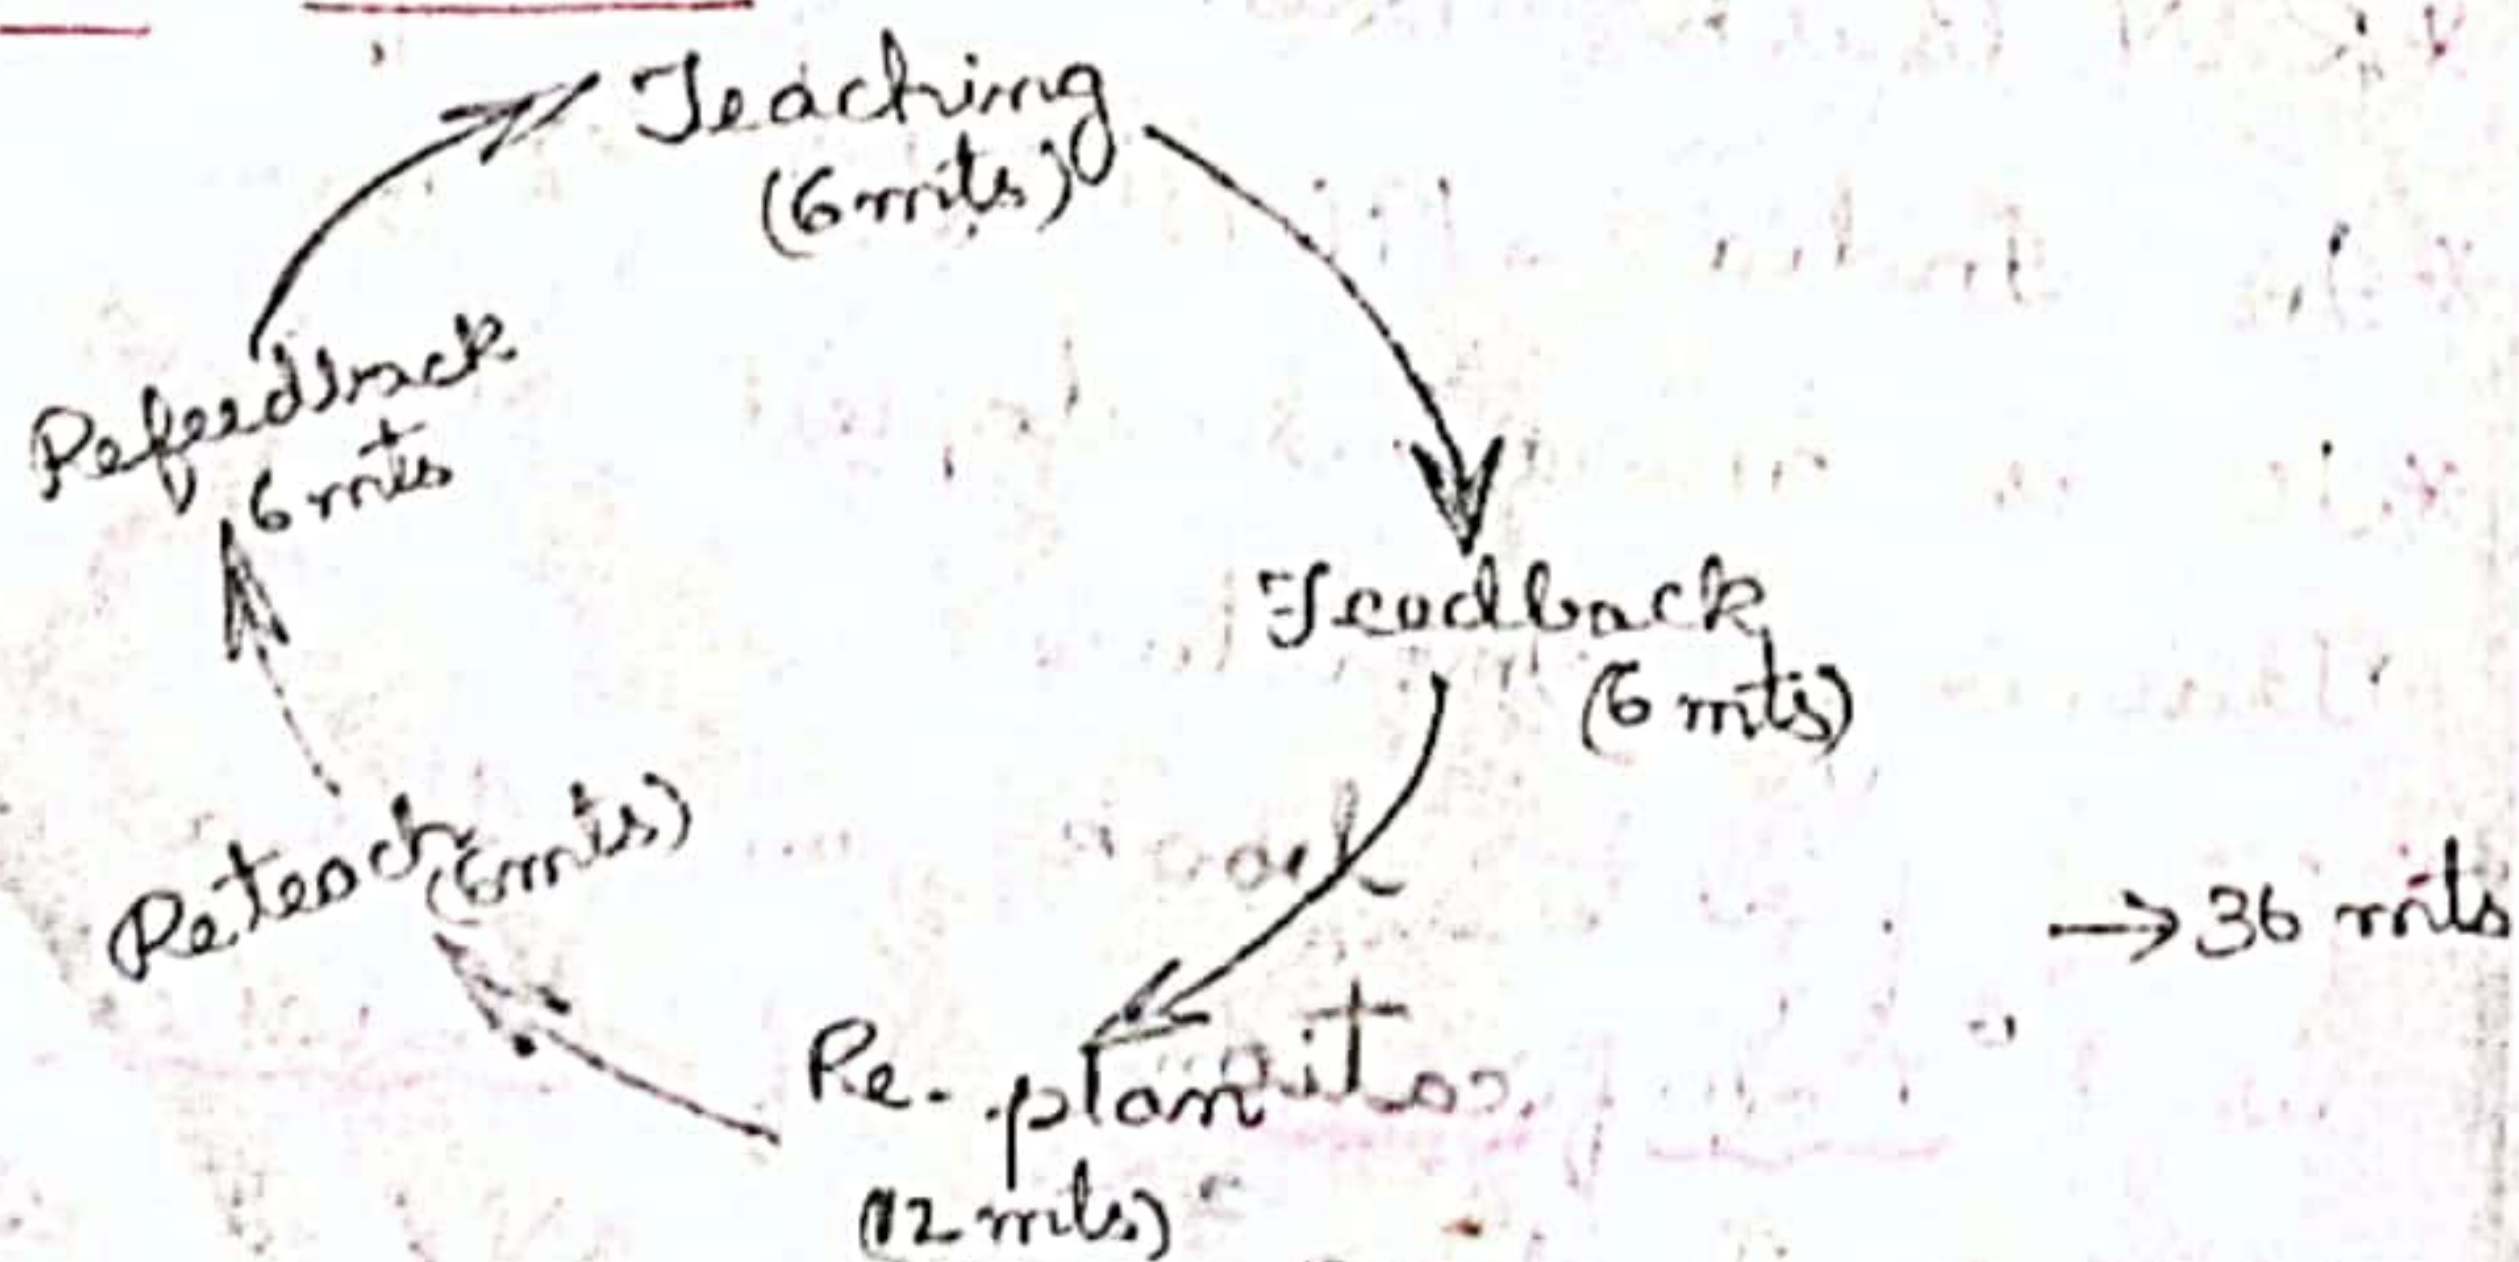 Teaching
(6 mts)
Feedback
(6 mts)
Re-plan
(12 mts)
Reteach (6 mts)
Refeedback
6 mts
→ 36 mts